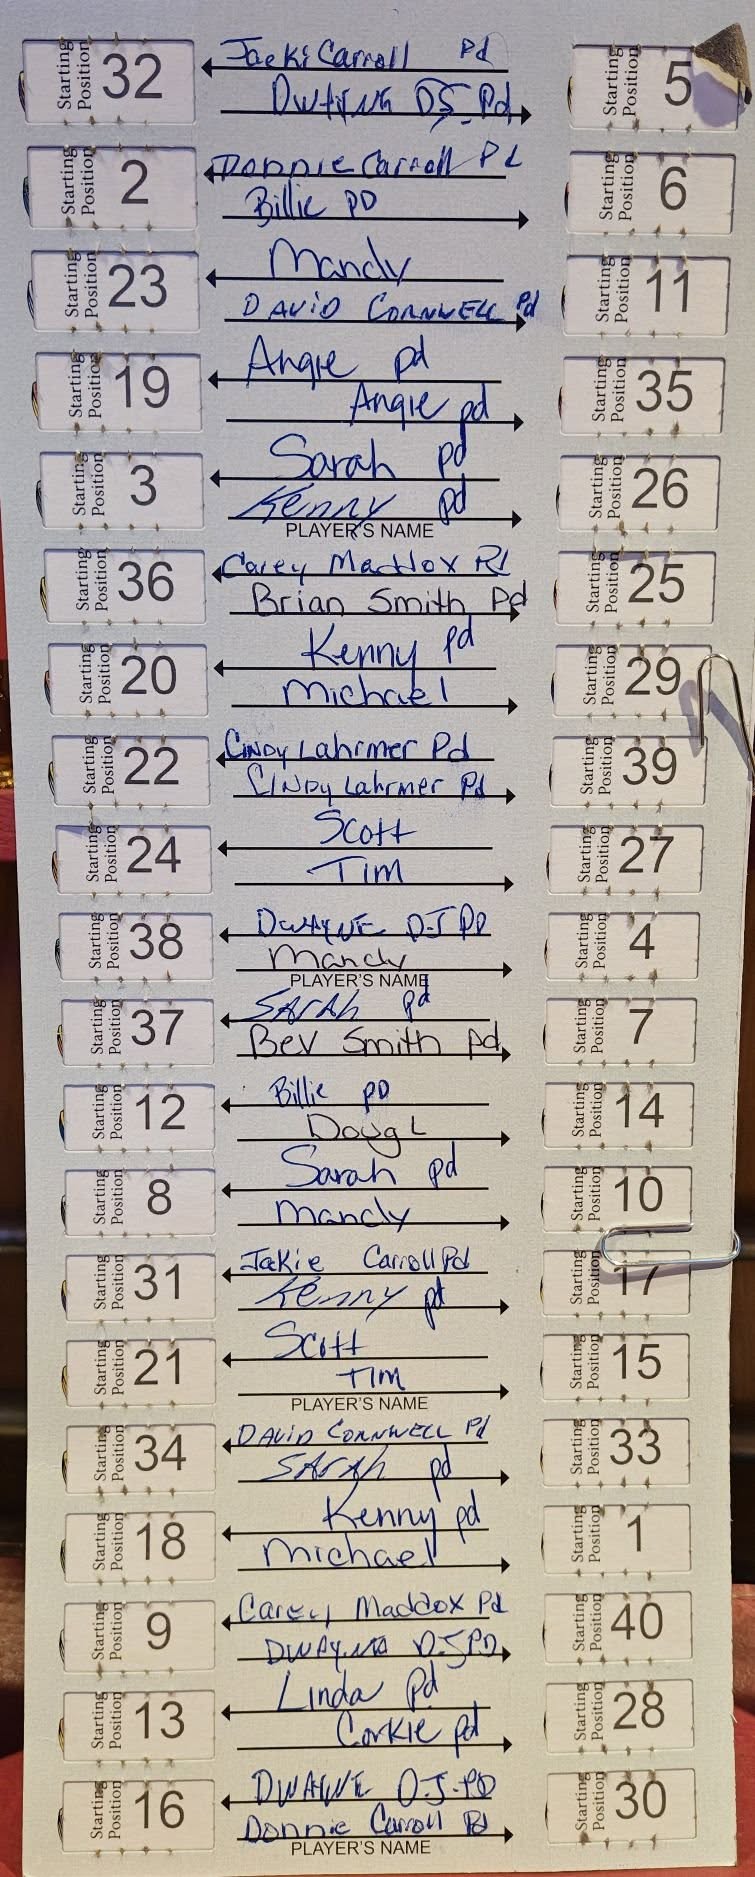 Starting Position 32 Jacki Carroll Pd
Dwayne DJ Pd Starting Position 5
Starting Position 2 Donnie Carroll Pd
Billie PD Starting Position 6
Starting Position 23 Mandy
DAVID CORNWELL Pd Starting Position 11
Starting Position 19 Angie pd
Angie pd Starting Position 35
Starting Position 3 Sarah pd
Kenny pd Starting Position 26
PLAYER'S NAME
Starting Position 36 Carey Maddox Pd
Brian Smith Pd Starting Position 25
Starting Position 20 Kenny pd
Michael Starting Position 29
Starting Position 22 Cindy Lahrmer Pd
Cindy Lahrmer Pd Starting Position 39
Starting Position 24 Scott
Tim Starting Position 27
Starting Position 38 DWAYNE DJ PD
Mandy Starting Position 4
PLAYER'S NAME
Starting Position 37 SARAh pd
Bev Smith pd Starting Position 7
Starting Position 12 Billie PD
Doug L Starting Position 14
Starting Position 8 Sarah pd
Mandy Starting Position 10
Starting Position 31 Jakie Carroll Pd
Kenny pd Starting Position 17
Starting Position 21 Scott
Tim Starting Position 15
PLAYER'S NAME
Starting Position 34 DAVID CORNWELL Pd
SARAh pd Starting Position 33
Starting Position 18 Kenny pd
Michael Starting Position 1
Starting Position 9 Carey Maddox Pd
DWAYNE DJ PD Starting Position 40
Starting Position 13 Linda Pd
Corkie pd Starting Position 28
Starting Position 16 DWAYNE DJ-PD
Donnie Carroll Pd Starting Position 30
PLAYER'S NAME